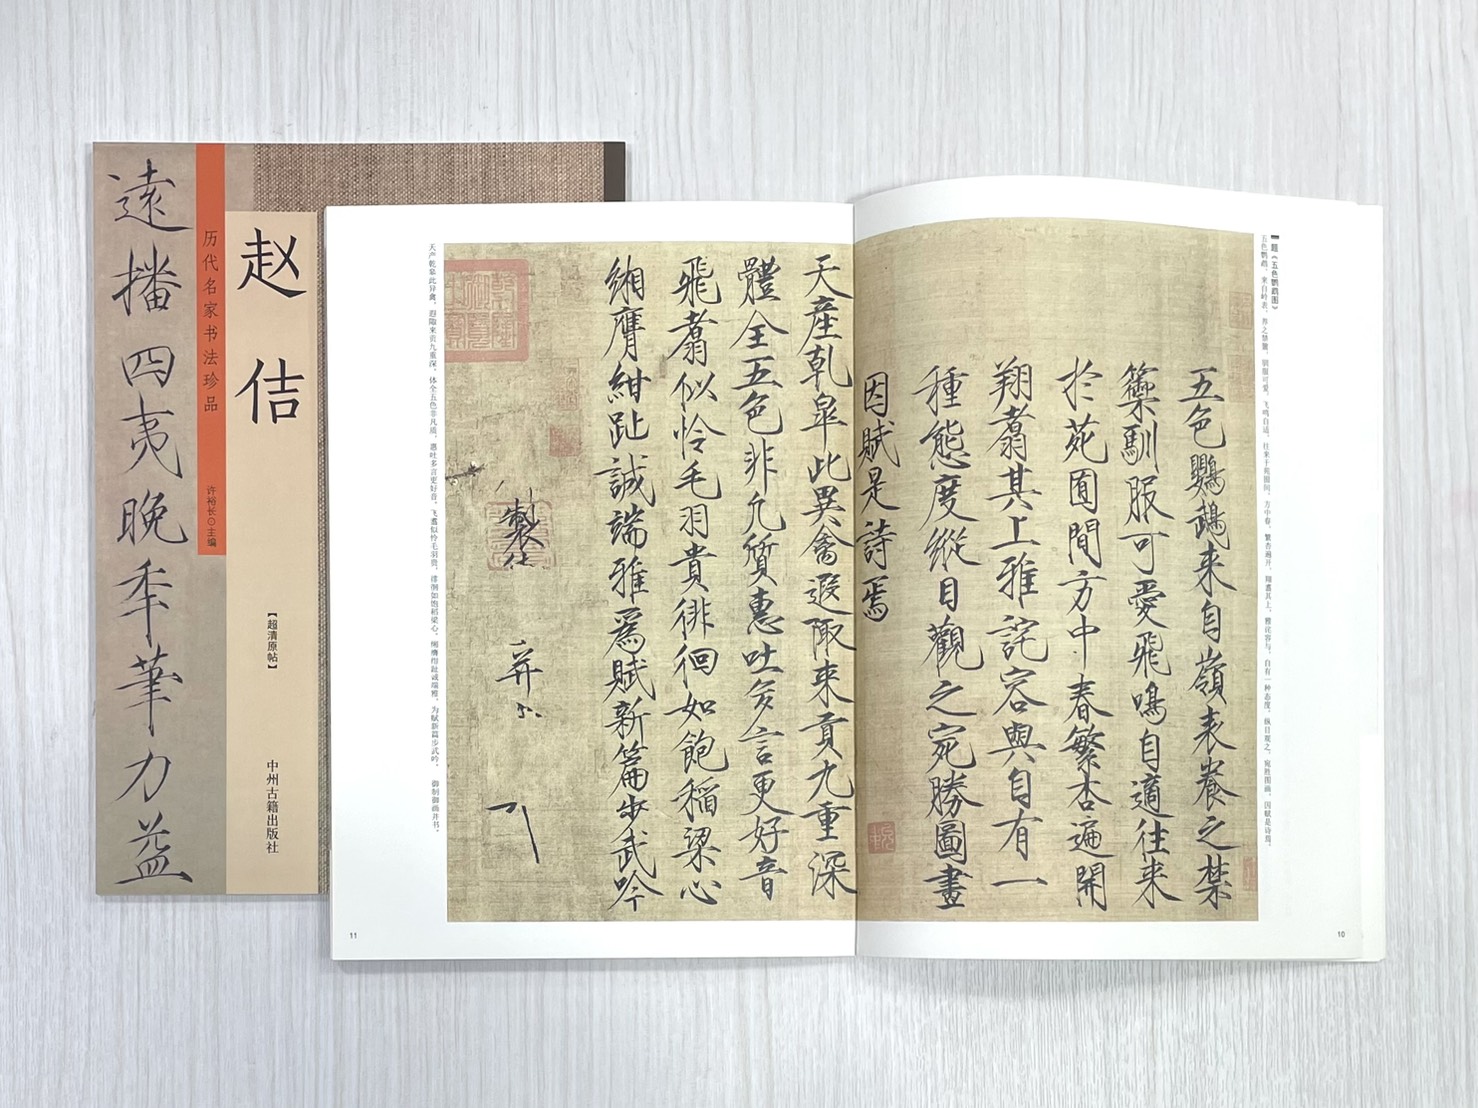 遠播四夷晚年筆力益
历代名家书法珍品
许裕长⊙主编
赵佶
【超清原帖】
中州古籍出版社
题《五色鹦鹉图》
五色鹦鹉，来自岭表，养之禁籞，驯服可爱，飞鸣自适，往来于苑囿间。方中春，繁杏遍开，翔翥其上，雅诧容与，自有一种态度，纵目观之，宛胜图画，因赋是诗焉。
五色鸚鵡来自嶺表養之禁
籞馴服可愛飛鳴自適往来
於苑囿間方中春繁杏遍開
翔翥其上雅詫容與自有一
種態度縱目觀之宛勝圖畫
因賦是詩焉
天產乾皋此異禽遐陬来貢九重深
體全五色非凡質惠吐多言更好音
飛翥似怜毛羽貴徘徊如飽稻粱心
緗膺紺趾誠端雅爲賦新篇步武吟
製
并
天产乾皋此异禽，遐陬来贡九重深。体全五色非凡质，惠吐多言更好音。飞翥似怜毛羽贵，徘徊如饱稻粱心。缃膺绀趾诚端雅，为赋新篇步武吟。
御制御画并书。
11
10